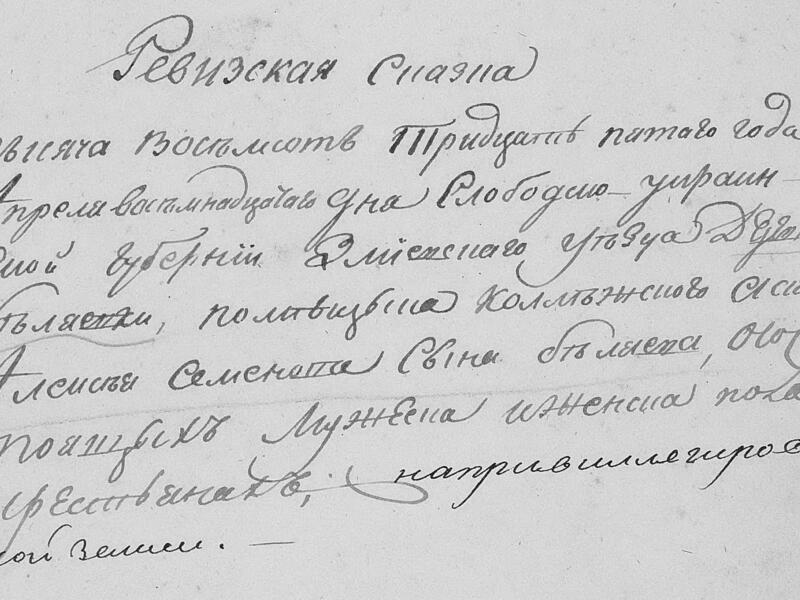 Ревизская сказка
тысяча восемсотъ Тридцать пятаго года
Апреля восемнадцатаго дня Слободско-украин-
ской губернiи Змiевского уѣзда
помѣщыка коллѣжского
Алексея Семенова Сына бѣляева,
стоящыхъ мужеска иженска
крестьянахъ, напривиллегиров
ной земли. —